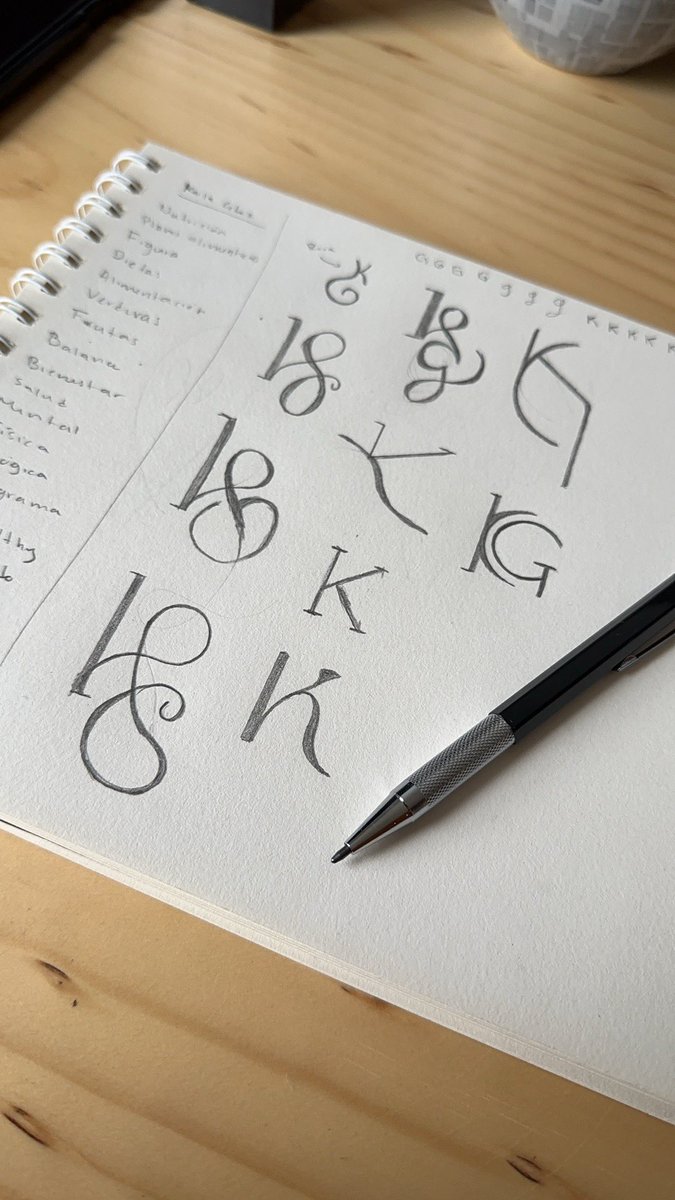 Nutrición
Planes alimenticios
Figura
Dietas
Alimentación
Verduras
Frutas
Balance
Bienestar
Salud
Mental
física
ógica
grama
thy
G G G G g g g
K K K K K
KG
KG
KG
KG
K
KG
K
KG
K